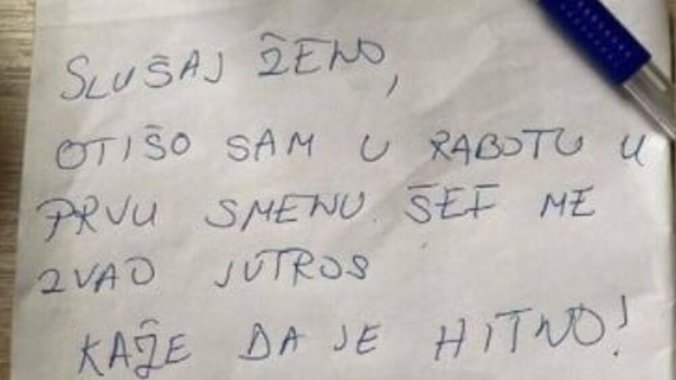 SLUŠAJ ŽENO,
OTIŠO SAM U RABOTU U
PRVU SMENU. ŠEF ME
ZVAO JUTROS
KAŽE DA JE HITNO!